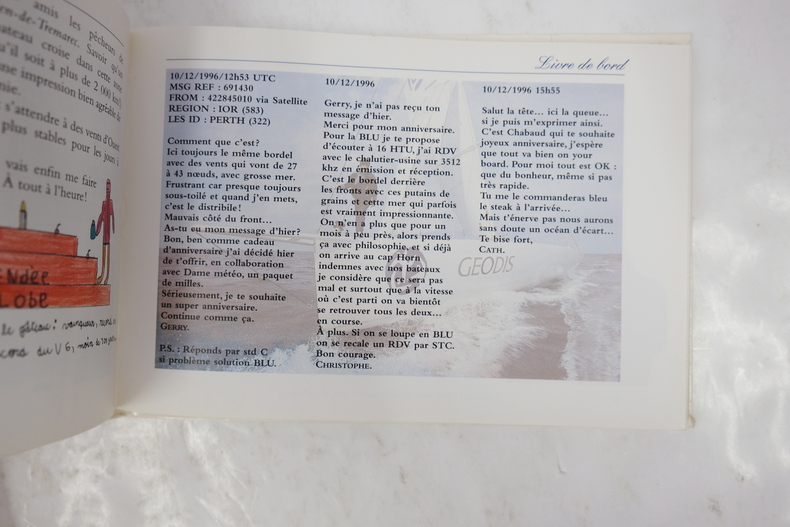 amis les pêcheurs de
rn-de-Tremarec. Savoir qu'un
ateau croise dans cette zone
u'il soit à plus de 2 000 km)
ne impression bien agréable de
nie.
s'attendre à des vents d'Ouest
plus stables pour les jours à
vais enfin me faire
À tout à l'heure!
ENDÉE
LOBE
le gâteau : vainqueur, rond
Livre de bord
10/12/1996/12h53 UTC
MSG REF : 691430
FROM : 422845010 via Satellite
REGION : IOR (583)
LES ID : PERTH (322)
Comment que c'est?
Ici toujours le même bordel
avec des vents qui vont de 27
à 43 nœuds, avec grosse mer.
Frustrant car presque toujours
sous-toilé et quand j'en mets,
c'est le distribile!
Mauvais côté du front…
As-tu eu mon message d'hier?
Bon, ben comme cadeau
d'anniversaire j'ai décidé hier
de t'offrir, en collaboration
avec Dame météo, un paquet
de milles.
Sérieusement, je te souhaite
un super anniversaire.
Continue comme ça.
GERRY.
P.S. : Réponds par std C
si problème solution BLU.
10/12/1996
Gerry, je n'ai pas reçu ton
message d'hier.
Merci pour mon anniversaire.
Pour la BLU je te propose
d'écouter à 16 HTU, j'ai RDV
avec le chalutier-usine sur 3512
khz en émission et réception.
C'est le bordel derrière
les fronts avec ces putains de
grains et cette mer qui parfois
est vraiment impressionnante.
On n'en a plus que pour un
mois à peu près, alors prends
ça avec philosophie, et si déjà
on arrive au cap Horn
indemnes avec nos bateaux
je considère que ce sera pas
mal et surtout que à la vitesse
où c'est parti on va bientôt
se retrouver tous les deux…
en course.
À plus. Si on se loupe en BLU
on se recale un RDV par STC.
Bon courage.
CHRISTOPHE.
10/12/1996 15h55
Salut la tête… ici la queue…
si je puis m'exprimer ainsi.
C'est Chabaud qui te souhaite
joyeux anniversaire, j'espère
que tout va bien on your
board. Pour moi tout est OK :
que du bonheur, même si pas
très rapide.
Tu me le commanderas bleu
le steak à l'arrivée…
Mais t'énerve pas nous aurons
sans doute un océan d'écart…
Te bise fort,
CATH.
GEODIS